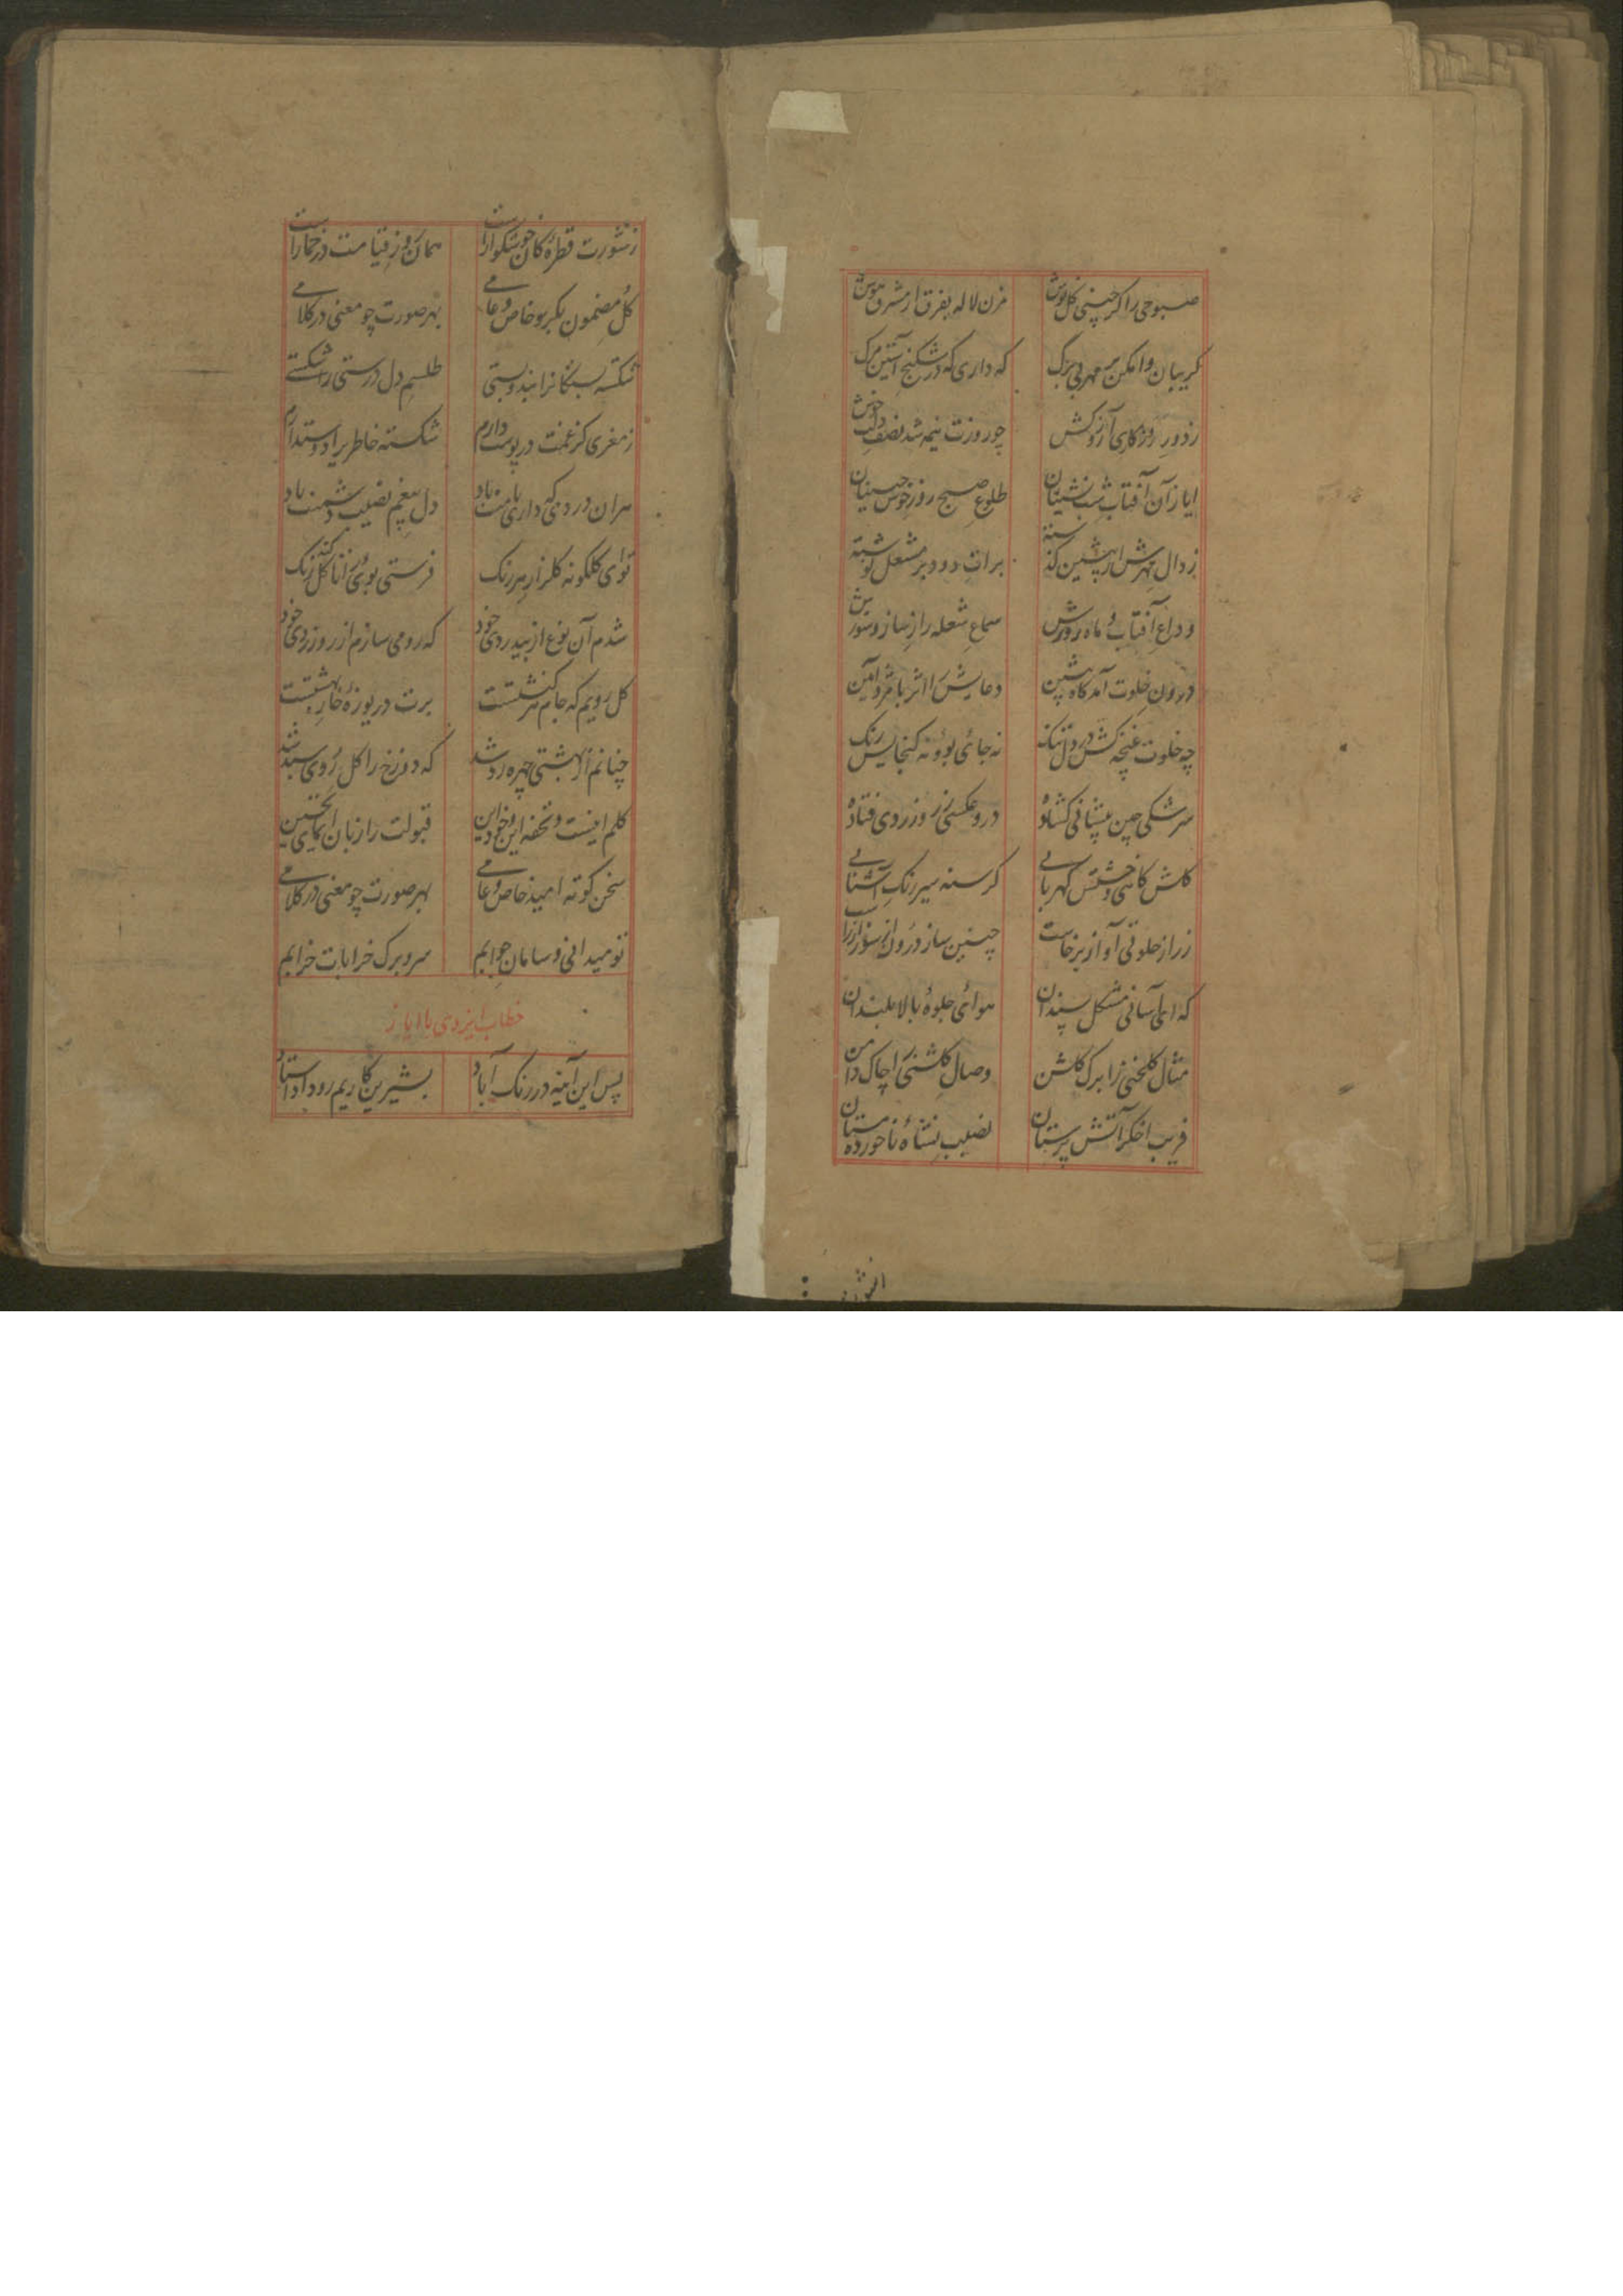 صبوحی را کر چینی کل نوش مزن لاله بفرق از مشرق هوش
کریبان وا مکن بر مهر بی برک که داری که در شکنج آستین مرک
ز دور روزکاری آرزوکش چو روزت نیمه شد نصف دلت خوش
ایاز آن آفتاب شب نشینان طلوع صبح روز خوش جبینان
زوال مهرش از پیشین کذشته برات دود بر مشعل نوشته
وداع آفتاب و ماه روزش سماع شعله را ز ساز و سوزش
درون خلوت آمد کاه پیشین دعایش را اثر با مژده آمین
چه خلوت غنچه کش در دل تنک نه جای بو و نه کنجایش رنک
سرشکی چین پیشانی کشاده درو عکسی ز روز زردی فتاده
کلش کاهی و خشتش کهربایی کرسنه سیر رنک آشنایی
ز راز خلوتی آواز برخاست چنین ساز درون از سوز آراست
که ای آسانی مشکل پسندان هوای جلوهٔ بالا بلندان
مثال کلخنی را برک کلشن وصال کلشنی را چاک دامن
فریب اخکر آتش پرستان نصیب نشاهٔ ناخورده مستان
ز شورت قطرهٔ کان خوشکوارست همان روز قیامت در خمارست
کل مضمون بکر بو خاص و عامی بهر صورت چو معنی در کلامی
شکسته بستکانرا بند و بستی طلسم دل درستی را شکستی
ز مغزی کز غمت در پوست دارم شکسته خاطری را دوست دارم
هران دردی که داری با منت باد دل بیغم نصیب دشمنت باد
توای کلکونه کلزار هر رنک فرستی بوی را تا کل کند رنک
شدم آن نوع از بیدردی خود که رو می سازم از رو زردی خود
کل رویم که جام سرکنشتست برت دریوزهٔ خار بهشتست
چنانم از بهشتی چهره رد شد که دوزخ را کل روی سبد شد
کلم اینست و تحفه این و خود این قبولت را زبان
سخن کوته امید خاص و عامی بهر صورت چو معنی در کلامی
تو میدانی و سامان جوابم سر و برک خرابات خرابم
خطاب ایزدی با ایاز
پس این آینه در رنک آباد بشیرین کاریم رو داد استاد